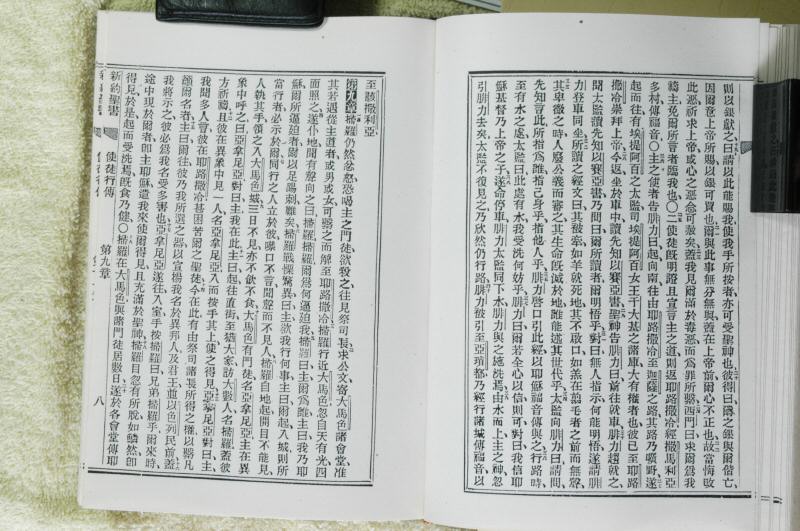 則以銀獻之曰請以此能賜我使我手所按者亦可受聖神也彼得曰爾之銀與爾偕亡
因爾意上帝所賜以銀可買也爾與此事無分無與蓋在上帝前爾心不正也故當悔改
此惡祈求上帝或心之惡念可赦矣蓋我見爾滿於毒惡而爲罪所繫西門曰求爾爲我
禱主免爾所言者臨我也〇二使徒旣明證且宣言主之道則返耶路撒冷經撒馬利亞
多村傳福音〇主之使者告腓力曰起向南往由耶路撒冷至迦薩之路其路乃曠野遂
起而往有埃提阿百之太監司埃提阿百女王干大基之諸庫大有權者也彼已至耶路
撒冷崇拜上帝今返坐於車中讀先知以賽亞書聖神告腓力曰前往就車腓力趨就之
聞太監讀先知以賽亞書乃問曰爾所讀者爾明悟乎對曰無人指示何能明悟遂請腓
力登車同坐所讀之經文曰其被牽如羊就死地其不啟口如羔在翦毛者之前而無聲
其卑微之時人廢公義而審之其生命旣滅於地誰能述其世代乎太監向腓力曰請問
先知言此所指爲誰指己身乎指他人乎腓力啓口引此經以耶穌福音傳與之行路時
至有水之處太監曰此處有水我受洗何妨乎腓力曰爾若全心以信則可對曰我信耶
穌基督乃上帝之子遂命停車腓力太監同下水腓力與之施洗焉由水而上主之神忽
引腓力去矣太監不復見之乃欣然仍行路腓力被引至亞瑣都乃經行諸城傳福音以
至該撒利亞
第九章 掃羅仍忿忿恐喝主之門徒欲殺之往見祭司長求公文寄大馬色諸會堂准
其若遇從主道者或男或女可縶之而解至耶路撒冷掃羅行近大馬色忽自天有光四
面照之遂仆地聞有聲向之曰掃羅掃羅爾爲何逼迫我掃羅曰主爾爲誰主曰我乃耶
穌爾所逼迫者爾以足踢刺難矣掃羅戰慄驚異曰主欲我行何事主曰爾起入城則所
當行者必示於爾同行之人立於彼噤口不言聞聲而不見人掃羅自地起開目不能見
人執其手領之入大馬色城三日不見亦不飲不食大馬色有門徒名亞拿尼亞主在異
象中呼之曰亞拿尼亞對曰主我在此主曰起往直街至猶大家訪大數人名掃羅蓋彼
方祈禱且彼在異象中見一人名亞拿尼亞入而按手其上使之得見亞拿尼亞對曰主
我聞多人言彼在耶路撒冷甚困苦爾之聖徒今在此有由祭司諸長所得之權以縶凡
籲爾名者主曰爾往彼乃我所選之器以宣揚我名於異邦人及君王並以色列民前蓋
我將示之彼必爲我名受多害也亞拿尼亞遂往入室手按掃羅曰兄弟掃羅乎爾來時
途中現於爾者卽主耶穌遣我來使爾得見且充滿於聖神掃羅目忽有所脫如鱗然卽
得見於是起而受洗焉旣食乃健〇掃羅在大馬色與諸門徒居數日遂於各會堂傳耶
新約聖書 使徒行傳 第九章 八